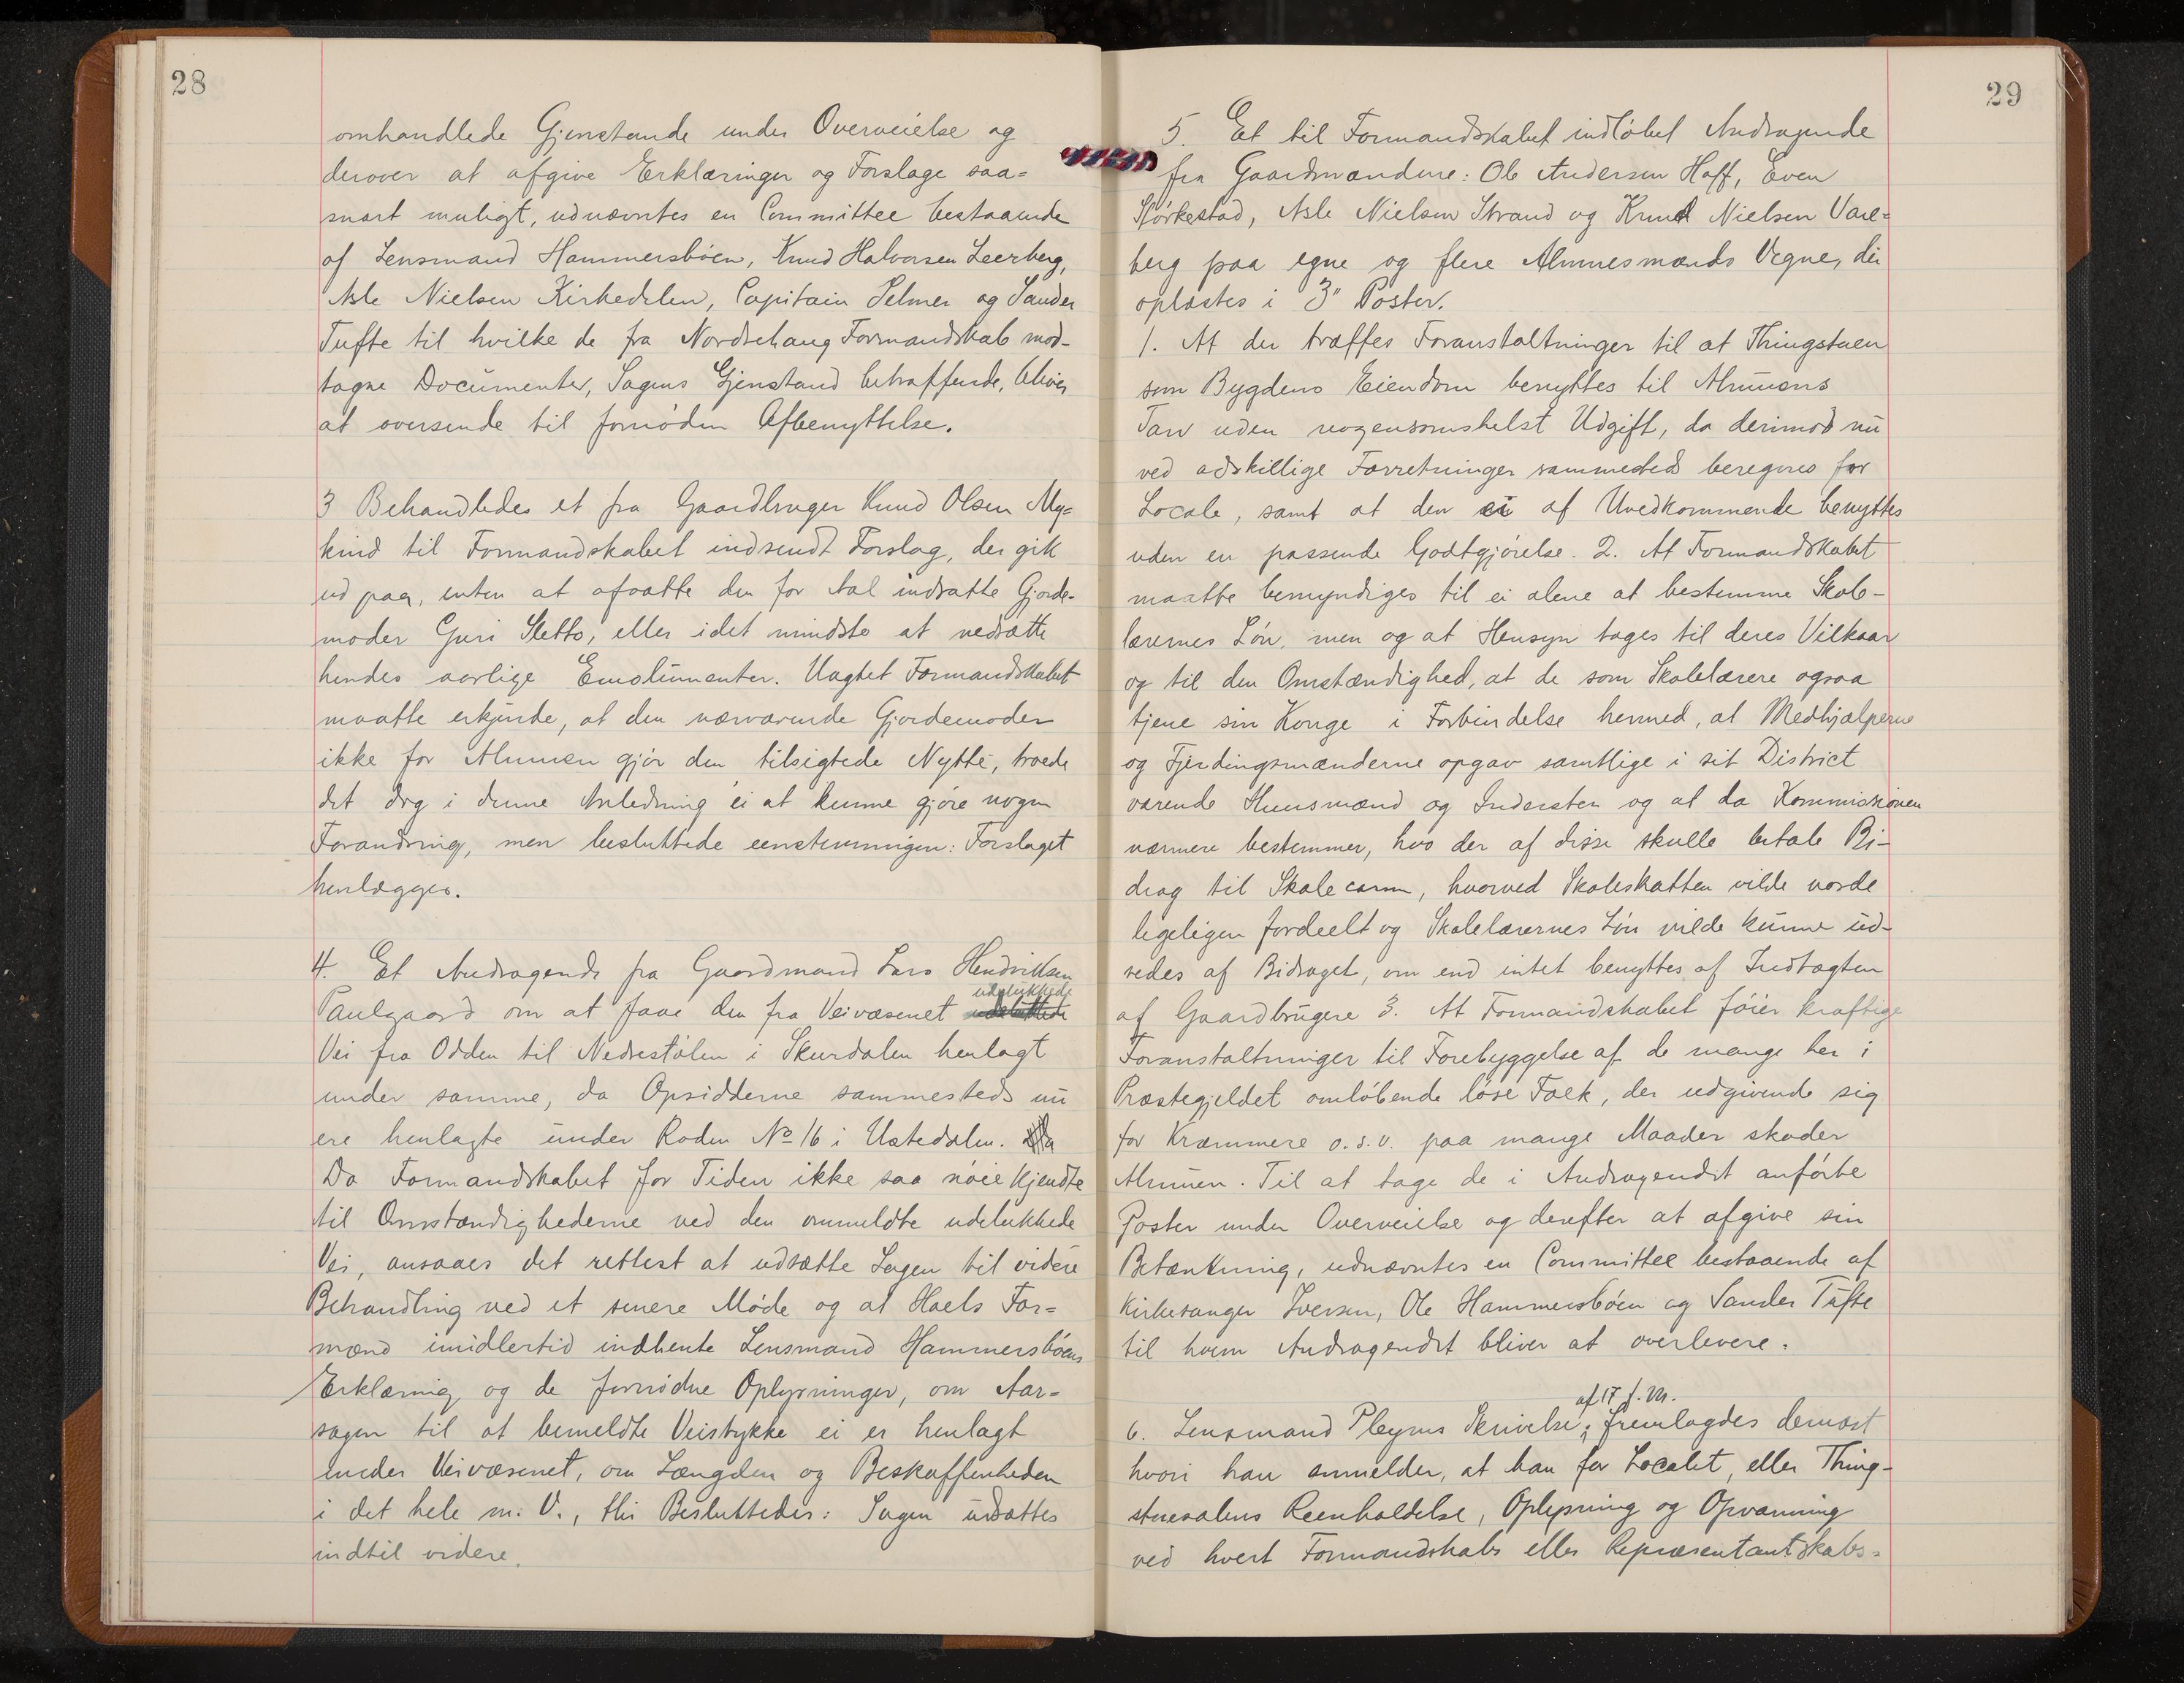 28
omhandlede Gjenstande under Overveielse og
derover at afgive Erklæringer og Forslage saa=
snart muligt, udnævntes en Committee bestaaende
af Lensmand Hammersbøen, Knud Halvorsen Leerberg,
Asle Nielsen Kirkedelen, Capitain Pelmer og Sander
Tufte til hvilke de fra Nordrehaug Formandskab mod-
tagne Documenter, Sagens Gjenstand betræffende, bliver
at oversende til fornøden Afbenyttelse.
3 Behandledes et fra Gaardbruger Knud Olsen My=
kind til Formandskabet indsendt Forslag, der gik
ud paa, enten at afsætte den for Aal indsatte Gjorde-
moder Guri Sletto, eller idet mindste at nedsætte
hendes aarlige Emolumenter. Uagtet Formandskabet
maatte erkjende, at den nærværende Gjordemoder
ikke for Almuen gjør den tilsigtede Nytte, troede
det dog i denne Anledning ei at kunne gjøre nogen
Forandring, men besluttede eenstemmigen: Forslaget
henlægges.
4. Et Andragende fra Gaardmand Lars Hendriksen
udelukkede
Paulgaard om at faae den fra Veivæsenet
Vei fra Odden til Nedrestølen i Skurdalen henlagt
under samme, da Opsidderne sammesteds nu
ere henlagte under Roden No 16 i Ustedalen.
Da Formandskabet for Tiden ikke saa nøie kjendte
til Omstændighederne ved den ommeldte udelukkede
Vei, ansaaes det rettest at udsætte Sagen til videre
Behandling ved et senere Møde og at Hoels For=
mænd imidlertid indhente Lensmand Hammersbøens
Erklæring og de fornødne Oplysninger, om Aar=
sagen til at bemeldte Veistykke ei er henlagt
under Veivæsenet, om Længden og Beskaffenheden
i det hele m. V., thi Besluttedes: Sagen udsættes
indtil videre.
29
5. Et til Formandskabet indløbet Andragende
fra Gaardmændene: Ole Andersen Hoff, Even
Størkestad, Asle Nielsen Strand og Knud Nielsen Vare=
berg paa egne og flere Almuesmænds Vegne, der
oplæstes i 3" Poster.
1. At der træffes Foranstaltninger til at Thingstuen
som Bygdens Eiendom benyttes til Almuens
Tarv uden nogensomshelst Udgift, da derimod nu
ved adskillige Forretninger sammesteds beregnes for
Locale, samt at den ei af Uvedkommende benyttes
uden en passende Godtgjørelse. 2. At Formandskabet
maatte bemyndiges til ei alene at bestemme Skole-
lærernes Løn, men og at Hensyn tages til deres Vilkaar
og til den Omstændighed, at de som Skolelærere ogsaa
tjene sin Konge i Forbindelse hermed, at Medhjælperne
og Fjerdingsmænderne opgav samtlige i sit District
værende Huusmænd og Inderster og at da Kommissionen
nærmere bestemmer, hvo der af disse skulle betale Bi-
drag til Skolecassen, hvorved Skoleskatten vilde vorde
ligeligen fordeelt og Skolelærernes Løn vilde kunne ud-
redes af Bidraget, om end intet benyttes af Indtægten
af Gaardbrugere 3. At Formandskabet føier kraftige
Foranstaltninger til Forebyggelse af de mange her i
Præstegjeldet omløbende løse Folk, der udgivende sig
for Kræmmere o.s.v. paa mange Maader skader
Almuen. Til at tage de i Andragendet anførte
Poster under Overveielse og derefter at afgive sin
Betænkning, udnævntes en Committee bestaaende af
Kirkesanger Iversen, Ole Hammersbøen og Sander Tufte
til hvem Andragendet bliver at overlevere.
af 17 f. M.
6. Lensmand Pleyms Skrivelse, fremlagdes dernæst
hvori han anmelder, at han for Localet, eller Thing-
stuesalens Reenholdelse, Oplysning og Opvarming
ved hvert Formandskabs eller Repræsentantskabs=